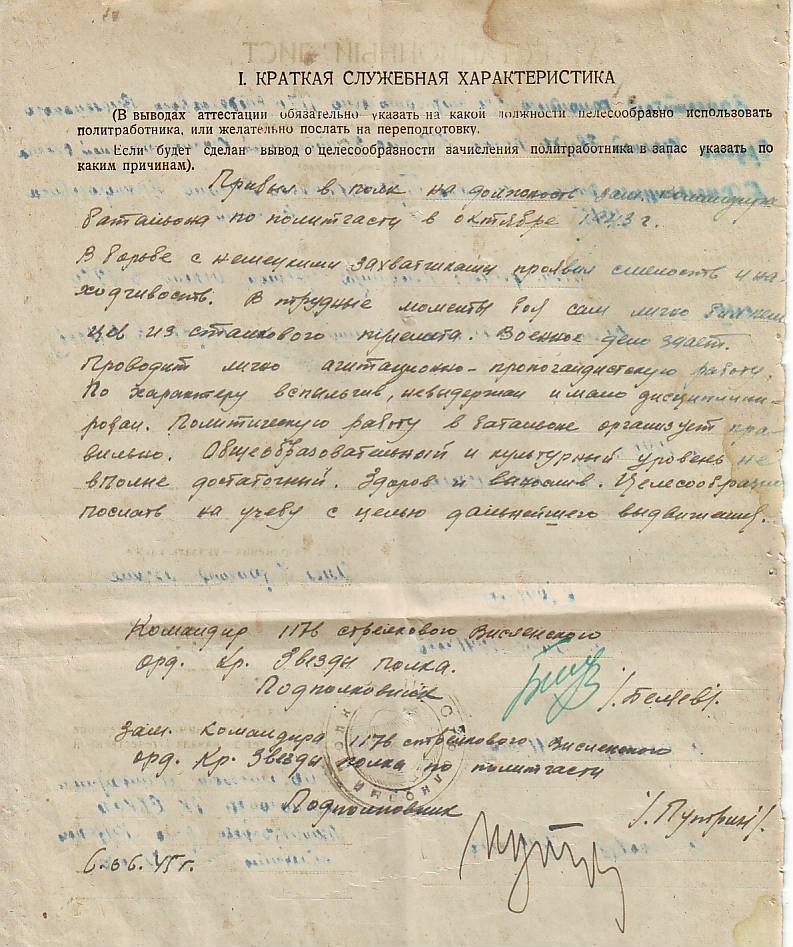 I. КРАТКАЯ СЛУЖЕБНАЯ ХАРАКТЕРИСТИКА
(В выводах аттестации обязательно указать на какой должности целесообразно использовать
политработника, или желательно послать на переподготовку.
Если будет сделан вывод о целесообразности зачисления политработника в запас указать по
каким причинам).
Прибыл в полк на должность зам. командира
батальона по политчасти в октябре 1943 г.
В борьбе с немецкими захватчиками проявил смелость и на-
ходчивость. В трудные моменты боя сам лично бил нем
цев из станкового пулемета. Военное дело знает.
Проводит лично агитационно-пропогандистскую работу.
По характеру вспыльчив, невыдержан и мало дисциплини-
рован. Политическую работу в батальоне организует пра-
вильно. Общеобразовательный и культурный уровень не
вполне достаточный. Здоров и вынослив. Целесообразно
послать на учебу с целью дальнейшего выдвижения.
Командир 117в стрелкового Висленского
орд. Кр. Звезды полка.
Подполковник /Беляев/.
Зам. командира 117в стрелкового Висленского
орд. Кр. Звезды полка по политчасти
Подполковник
6.06.45г.